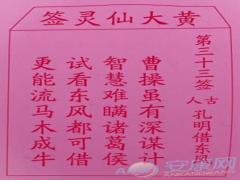 黄大仙灵签
第三十三签
古人 孔明借东风
曹操虽有深谋计
智慧难瞒诸葛侯
试看东风都可借
更能流马木成牛